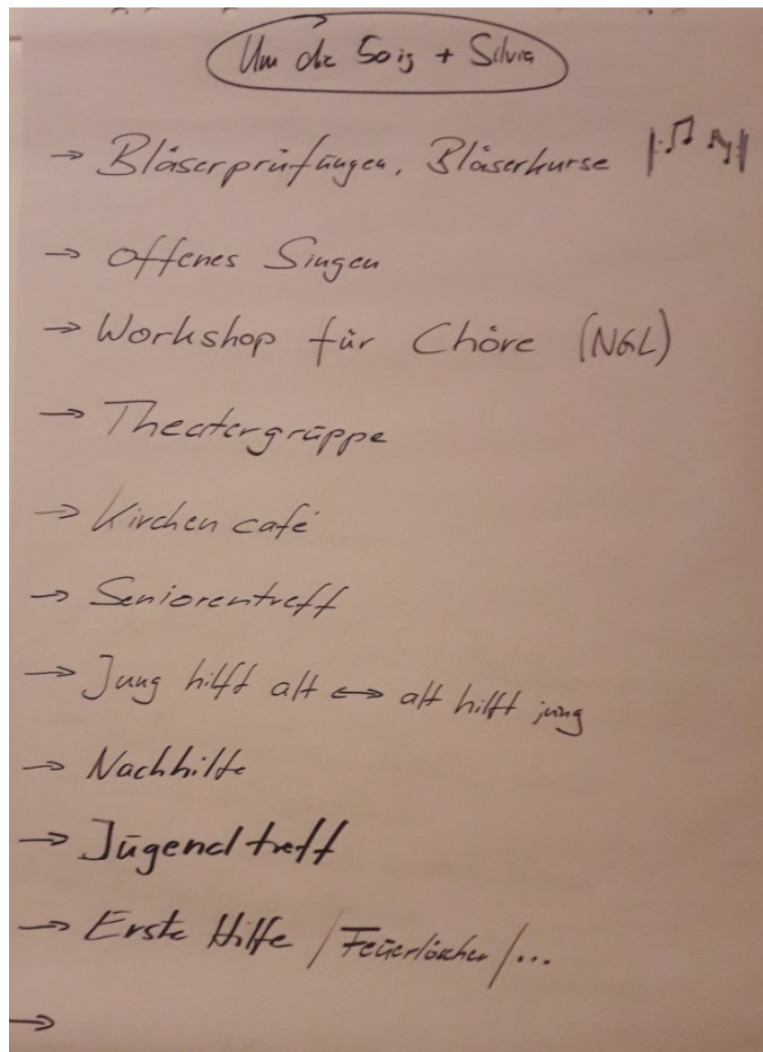 Um die 50ig + Silvia
→ Bläserprüfungen, Bläserkurse
→ Offenes Singen
→ Workshop für Chöre (NGL)
→ Theatergruppe
→ Kirchencafé
→ Seniorentreff
→ Jung hilft alt ↔ alt hilft jung
→ Nachhilfe
→ Jugendtreff
→ Erste Hilfe / Feuerlöscher / ...
→